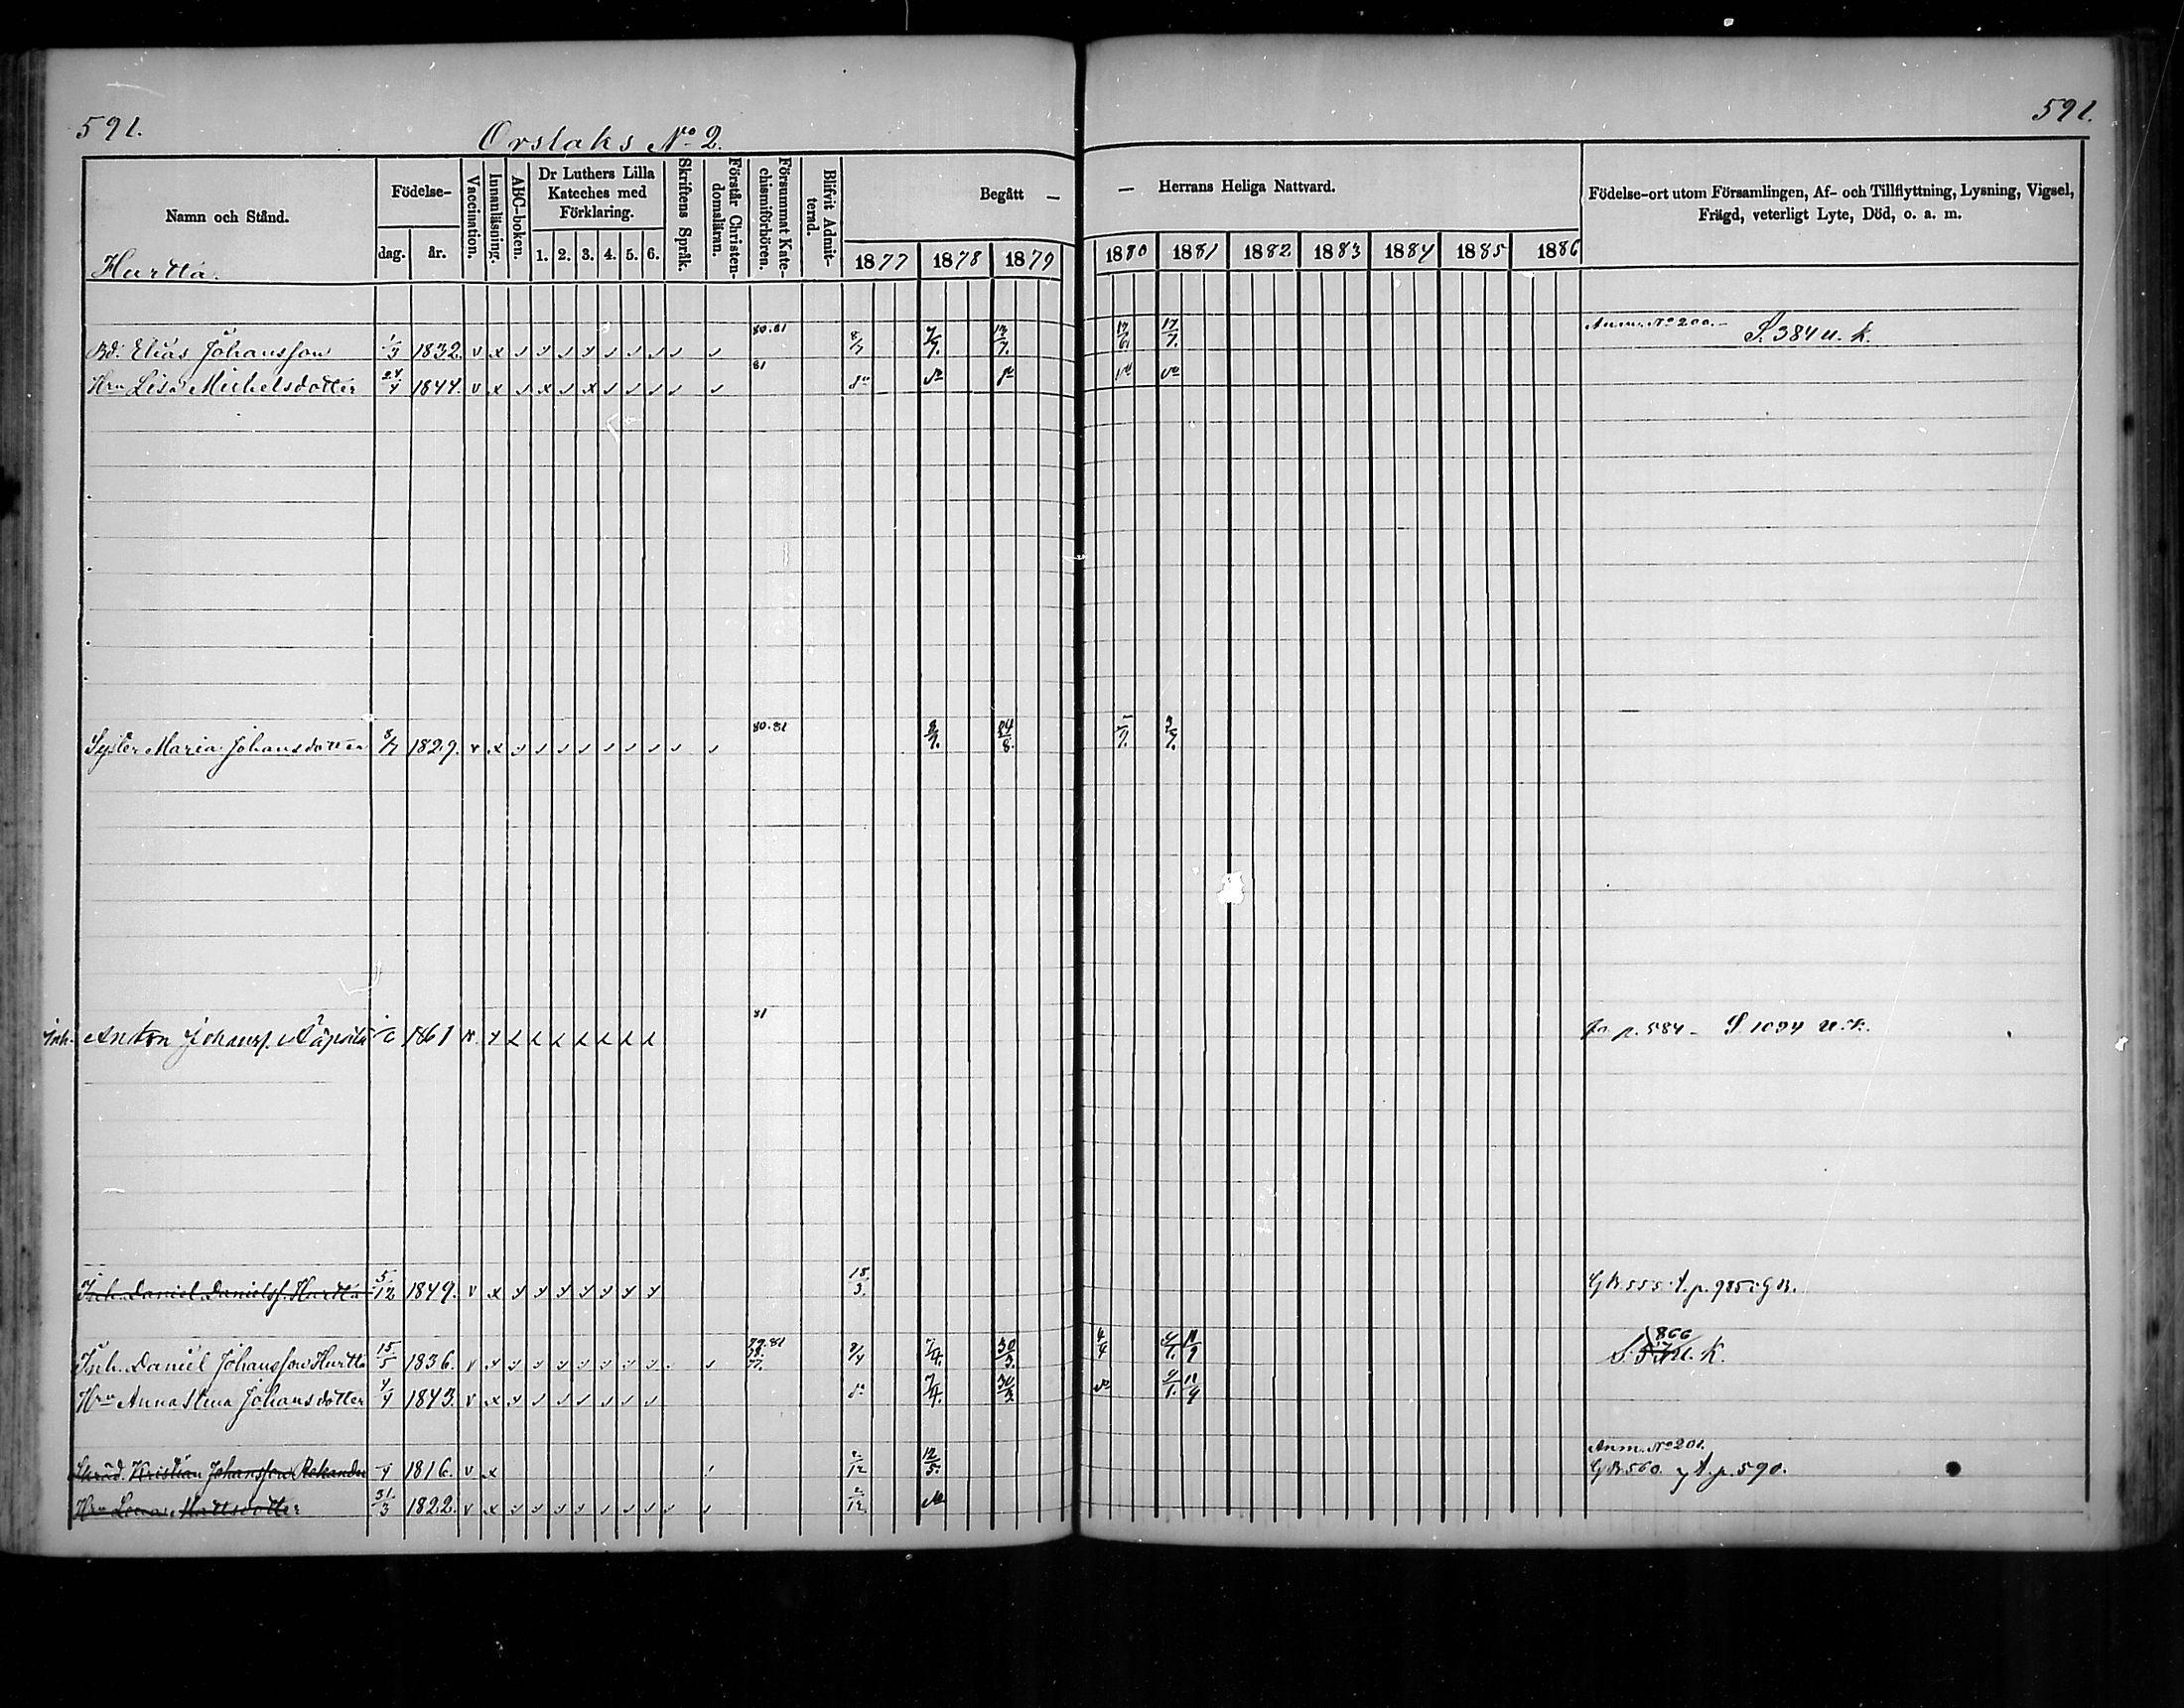 591.
591.
Orslaks No 2.
Namn och Stånd.
Födelse-
dag. år.
Vaccination.
Innanläsning.
ABC-boken.
Dr Luthers Lilla Kateches med Förklaring.
1. 2. 3. 4. 5. 6.
Skriftens Språk.
Förstår Christendomsläran.
Försummat Katechismiförhören.
Blifvit Admitterad.
Begått — — Herrans Heliga Nattvard.
1877 1878 1879 1880 1881 1882 1883 1884 1885 1886
Födelse-ort utom Församlingen, Af- och Tillflyttning, Lysning, Vigsel,
Frägd, veterligt Lyte, Död, o. a. m.
Hurtta.
Bd. Elias Johansson 1/3 1832. v x 80.81 8/7 7/7. 13/7. 13/6. 17/7. Anm. No 200.- S. 384 u. k.
Hru Lisa Michelsdotter 24/4 1844. v x 81
Syster Maria Johansdotter 8/7 1829. v x 80.81 24/8.
Inh. Anton Johanss. 1861 v 81 fr. p. 584 - S. 1094 u. k.
Inh. Daniel Danielss. Hurtta 5/12 1849. v x 18/3. GB. 555. t. p. 985 i GB.
Inh. Daniel Johansson Hurtta 15/5 1836. v 79.81 78. 77. 7/4. 30/3. 4/4 866 u. k.
Hru Anna Stina Johansdotter 4/4 1843. v x 7/4. 30/3
Skräd. Kristian Johansson 1816. v x 2/12 12/5. Anm. No 201. GB. 560. t. p. 590.
Hru Lena Mattsdotter 31/3 1822. v x 2/12